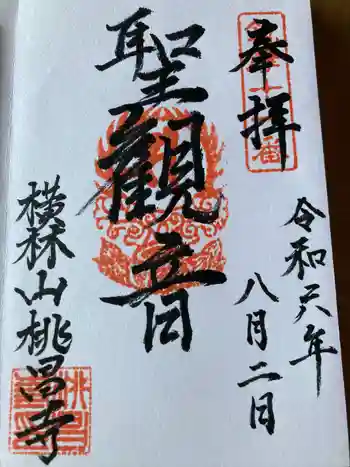 奉拝
令和六年
八月二日
聖観音
横林山桃昌寺